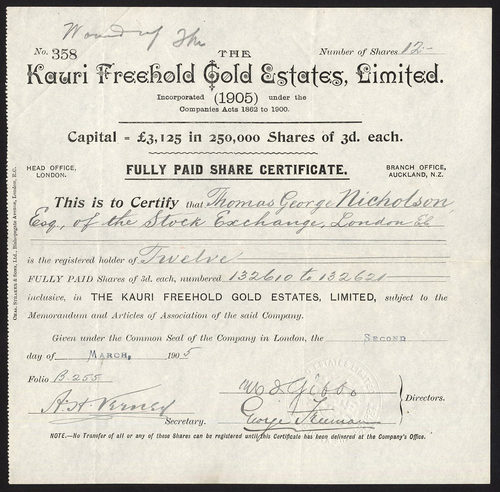 Wound up
THE
No. 358
Number of Shares 12.-
Kauri Freehold Gold Estates, Limited.
Incorporated (1905) under the
Companies Acts 1862 to 1900.
Capital = £3,125 in 250,000 Shares of 3d. each.
HEAD OFFICE,
LONDON.
FULLY PAID SHARE CERTIFICATE.
BRANCH OFFICE,
AUCKLAND, N.Z.
This is to Certify that Thomas George Nicholson
Esq., of the Stock Exchange, London E.C.
is the registered holder of Twelve
FULLY PAID Shares of 3d. each, numbered 132610 to 132621
inclusive, in THE KAURI FREEHOLD GOLD ESTATES, LIMITED, subject to the
Memorandum and Articles of Association of the said Company.
Given under the Common Seal of the Company in London, the SECOND
day of MARCH, 1905
Folio B 255
Gibbs
Directors.
Secretary.
George Freeman
NOTE.—No Transfer of all or any of these Shares can be registered until this Certificate has been delivered at the Company's Office.
CHAS. STRAKER & SONS, Ltd., Bishopsgate Avenue, London, E.C.